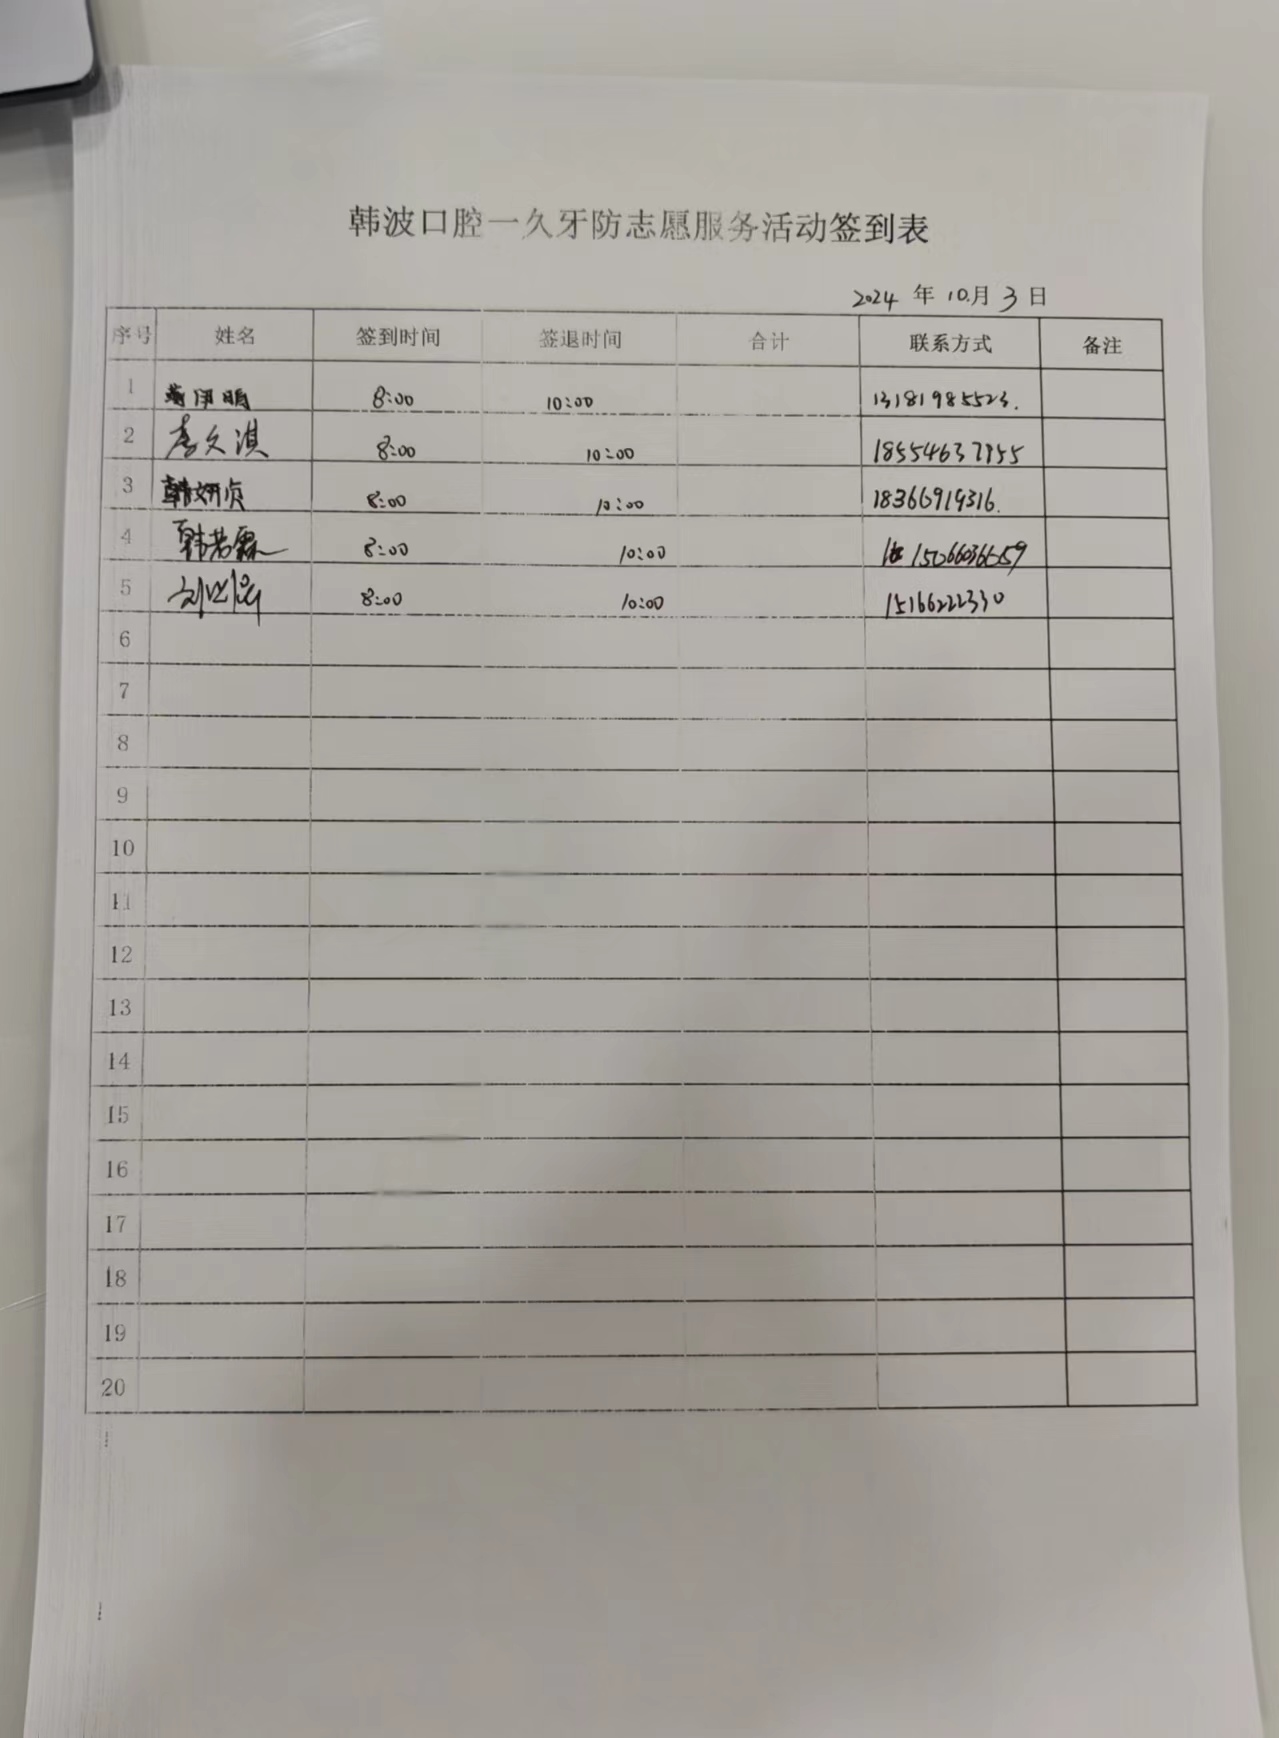 韩波口腔一久牙防志愿服务活动签到表
2024 年 10月 3 日
序号 姓名 签到时间 签退时间 合计 联系方式 备注
1 8:00 10:00 13181985523.
2 李久淇 8:00 10:00 18554637955
3 韩妍贞 8:00 10:00 18366919316.
4 韩若霖 8:00 10:00 15066036659
5 8:00 10:00 15166222330
6
7
8
9
10
11
12
13
14
15
16
17
18
19
20